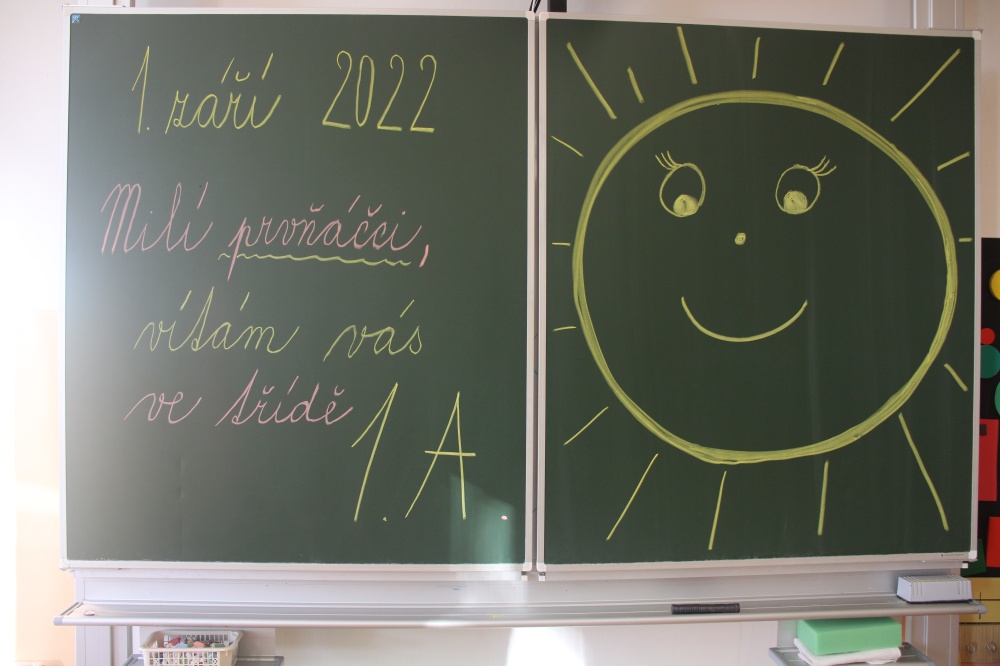 1. září 2022
Milí prvňáčci,
vítám vás
ve třídě 1. A.